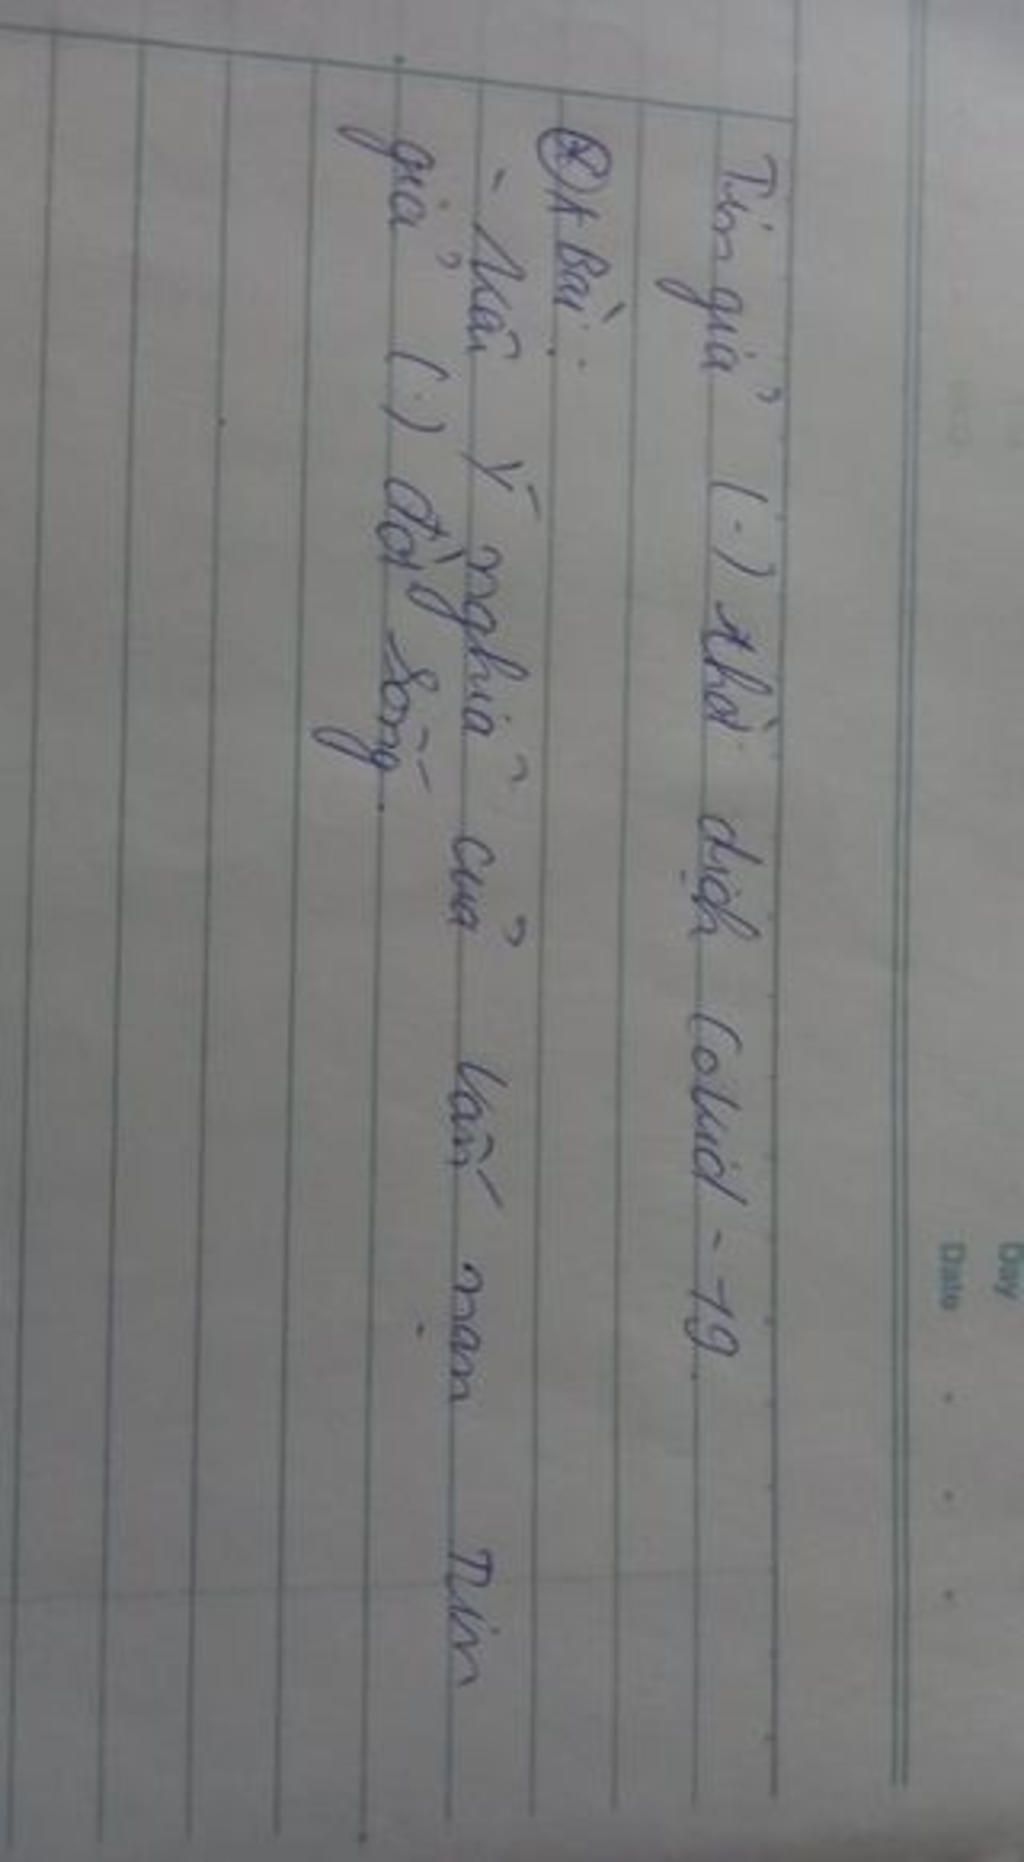 Day
Date
Tin giả (.) thời dịch Covid-19.
Bài:
Nêu ý nghĩa của vấn nạn Tin
giả (.) đời sống.